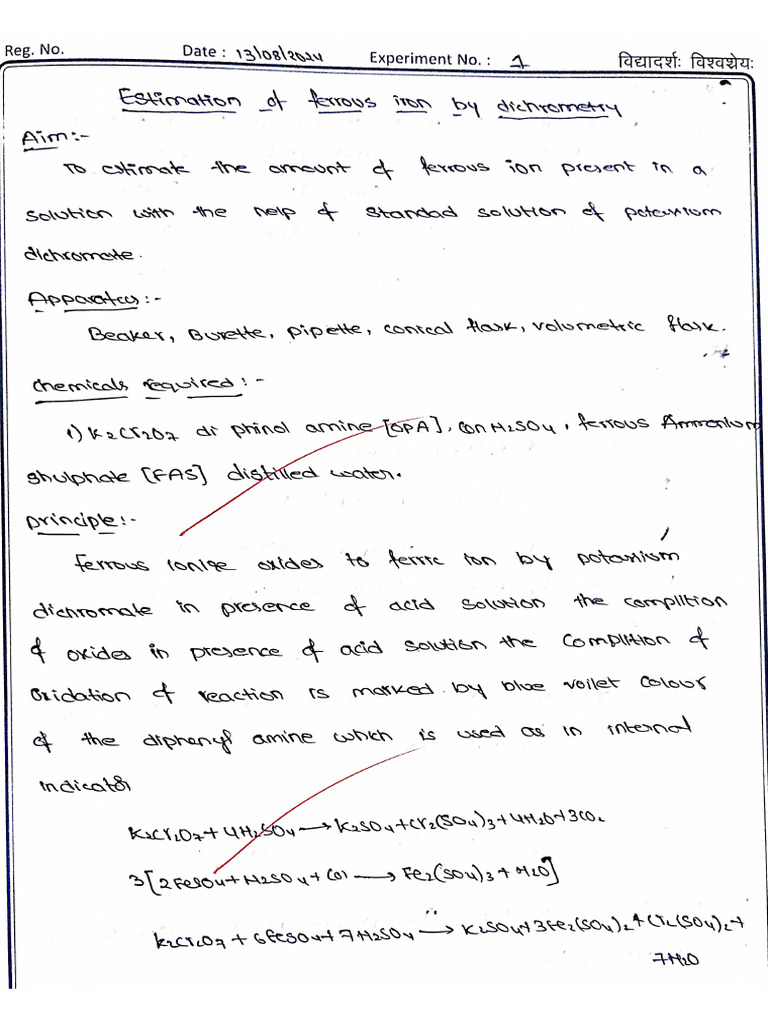 Reg. No. Date : 13/08/2024 Experiment No. : 1 विद्यादर्शः विश्वश्रेयः
Estimation of ferrous iron by dichrometry
Aim:-
To estimate the amount of ferrous ion present in a
solution with the help of standad solution of potassium
dichromate.
Apparatus:-
Beaker, Burette, pipette, conical flask, volumetric flask.
chemicals required:-
1) K2Cr2O7 di phinol amine [DPA], con H2SO4, ferrous Ammonium
shulphate [FAS] distilled water.
principle:-
ferrous ionise oxides to ferric ion by potassium
dichromate in presence of acid solution the complition
of oxides in presence of acid solution the complition of
oxidation of reaction is marked by blue voilet colour
of the diphenyl amine which is used as in internal
indicator
K2Cr2O7+4H2SO4→K2SO4+Cr2(SO4)3+4H2O+3CO2
3[2FeSO4+H2SO4+(O)→Fe2(SO4)3+H2O]
K2Cr2O7+6FeSO4+7H2SO4→K2SO4+3Fe2(SO4)2+Cr2(SO4)2+
7H2O